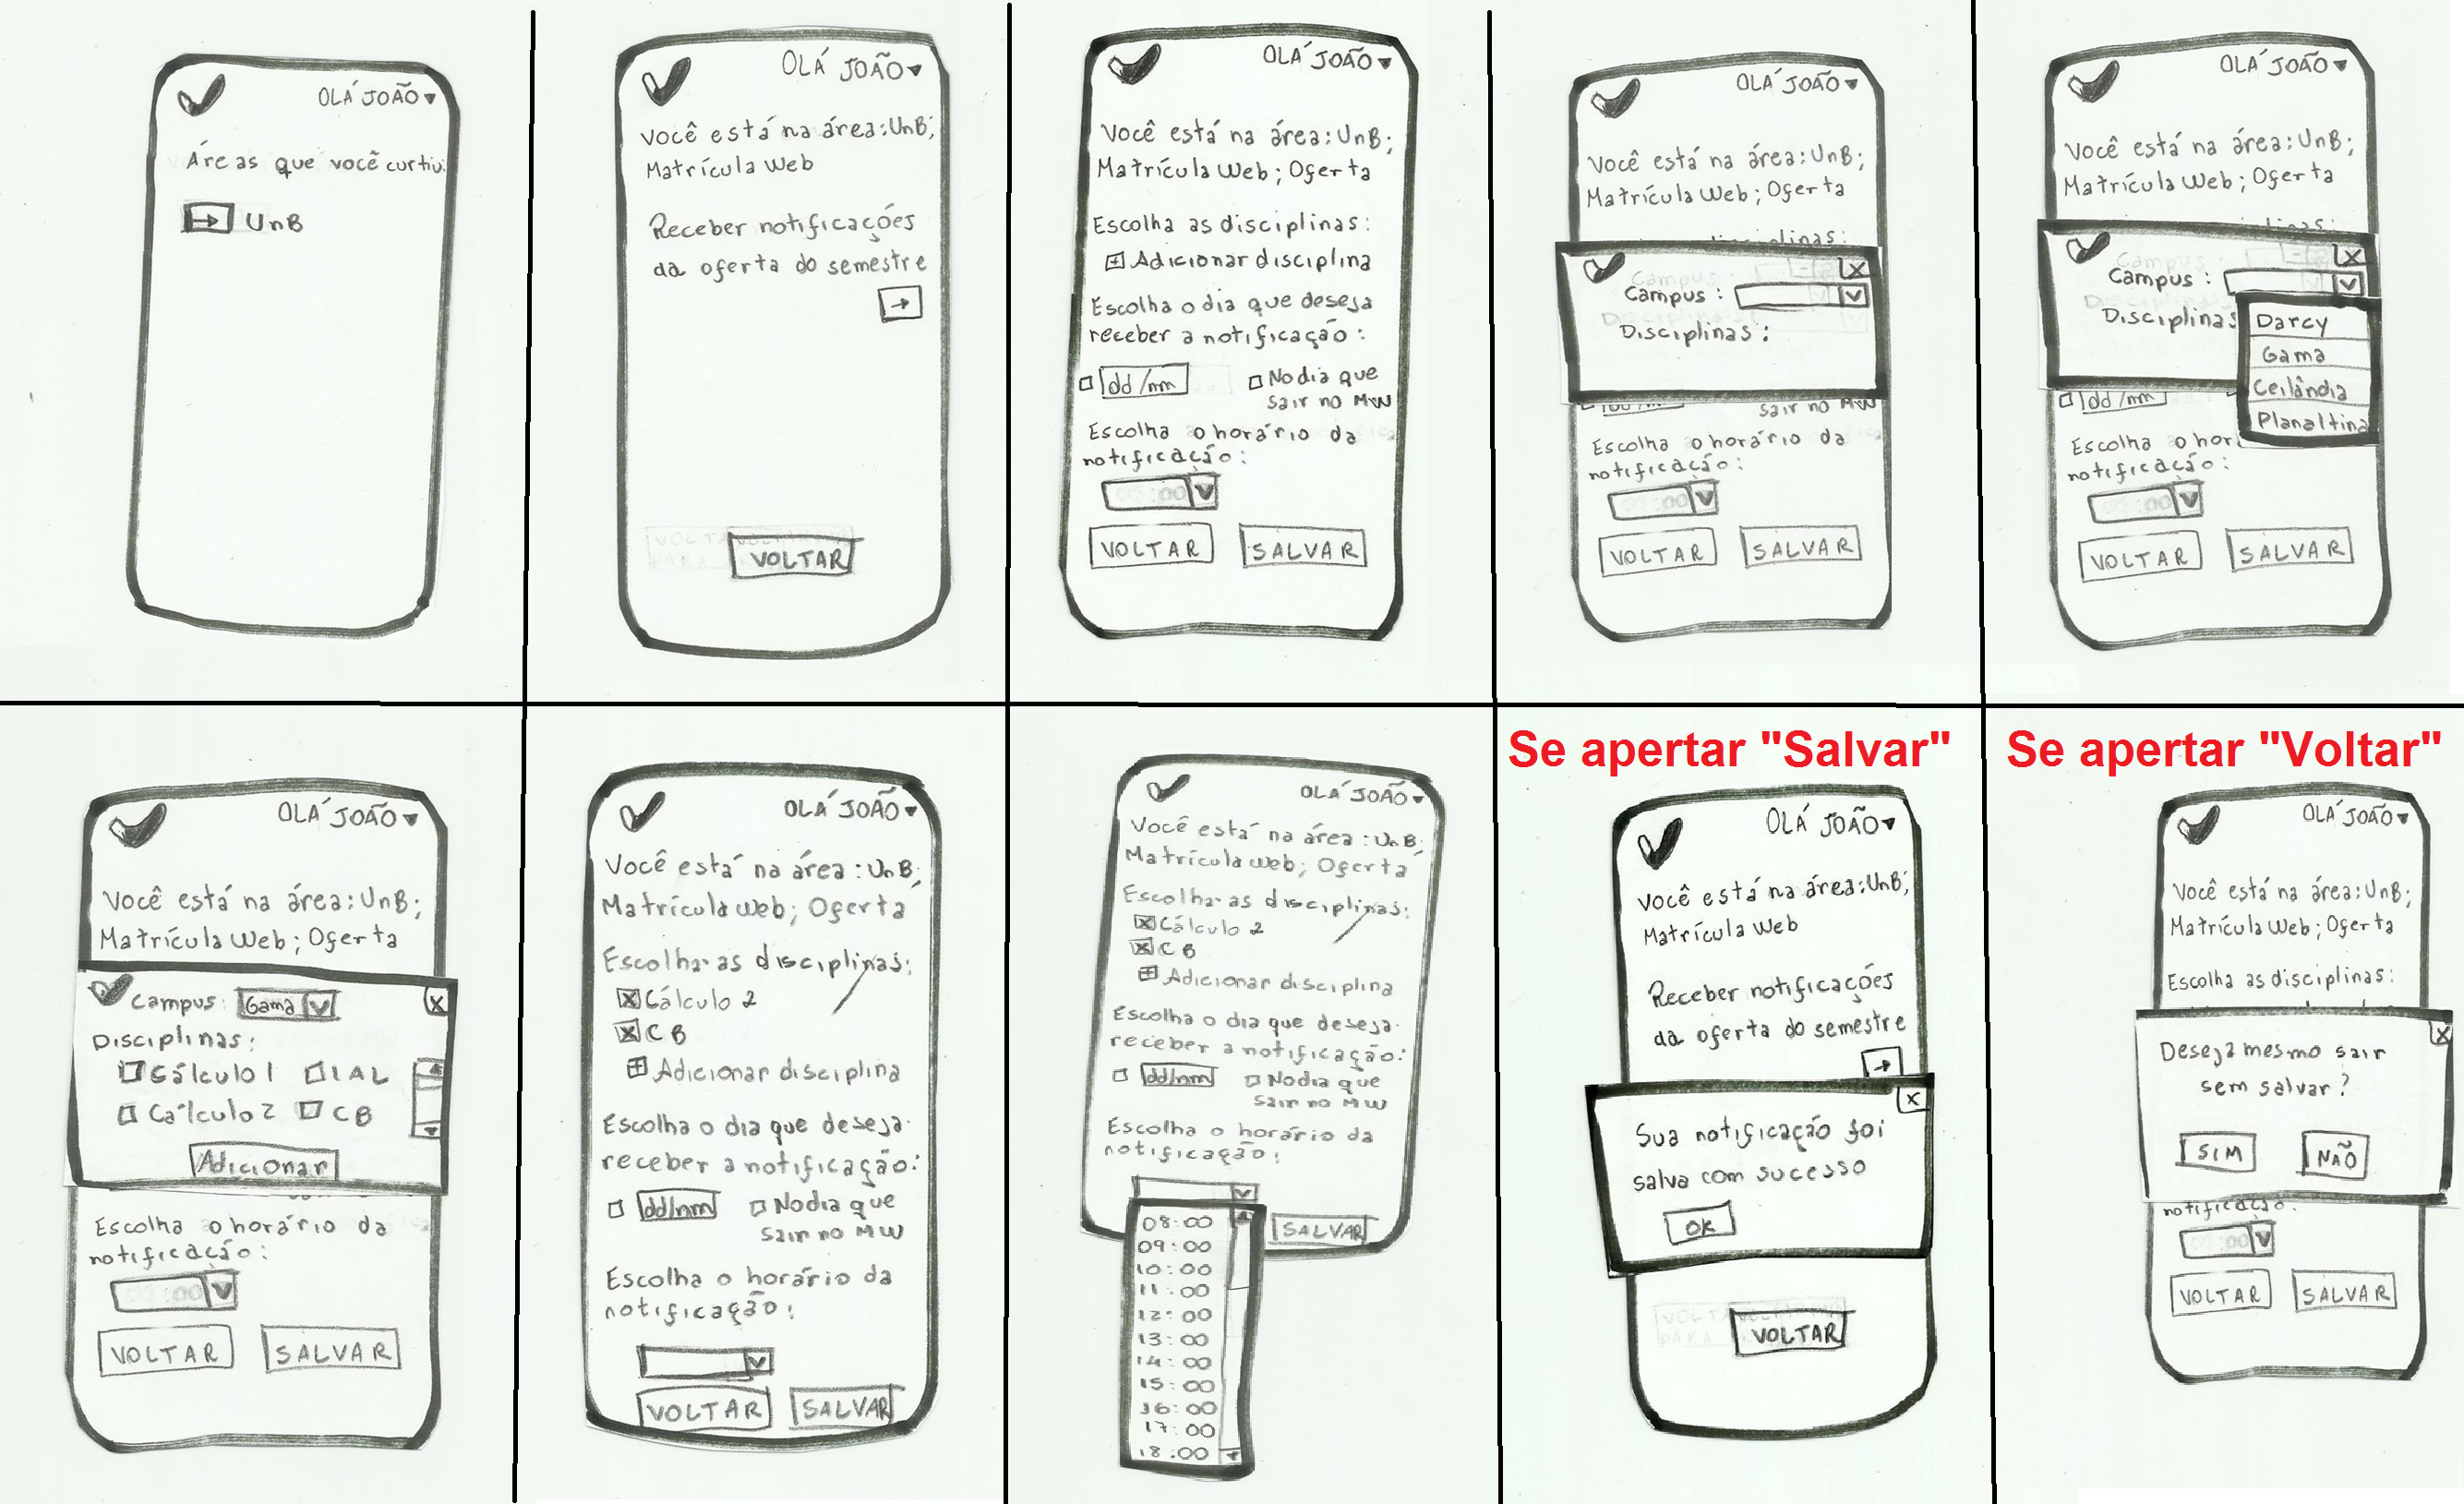 OLÁ JOÃO
Áreas que você curtiu:
UnB
OLÁ JOÃO
Você está na área: UnB;
Matrícula Web
Receber notificações
da oferta do semestre
VOLTAR
OLÁ JOÃO
Você está na área: UnB;
Matrícula Web; Oferta
Escolha as disciplinas:
Adicionar disciplina
Escolha o dia que deseja
receber a notificação:
dd/mm
No dia que
sair no MW
Escolha o horário da
notificação:
VOLTAR SALVAR
OLÁ JOÃO
Você está na área: UnB;
Matrícula Web; Oferta
X
Campus:
Disciplinas:
sair no MW
Escolha o horário da
notificação:
VOLTAR SALVAR
OLÁ JOÃO
Você está na área: UnB;
Matrícula Web; Oferta
X
Campus:
Disciplinas
Darcy
Gama
Ceilândia
Planaltina
dd/mm
Escolha o hor
notificação:
VOLTAR SALVAR
OLÁ JOÃO
Você está na área: UnB;
Matrícula Web; Oferta
Campus: Gama X
Disciplinas:
Cálculo 1 IAL
Cálculo 2 CB
Adicionar
Escolha o horário da
notificação:
VOLTAR SALVAR
OLÁ JOÃO
Você está na área: UnB;
Matrícula Web; Oferta
Escolha as disciplinas:
Cálculo 2
CB
Adicionar disciplina
Escolha o dia que deseja
receber a notificação:
dd/mm No dia que
sair no MW
Escolha o horário da
notificação:
VOLTAR SALVAR
OLÁ JOÃO
Você está na área: UnB;
Matrícula Web; Oferta
Escolha as disciplinas:
Cálculo 2
CB
Adicionar disciplina
Escolha o dia que deseja
receber a notificação:
dd/mm No dia que
sair no MW
Escolha o horário da
notificação:
SALVAR
08:00
09:00
10:00
11:00
12:00
13:00
14:00
15:00
16:00
17:00
18:00
Se apertar "Salvar"
OLÁ JOÃO
Você está na área: UnB;
Matrícula Web
Receber notificações
da oferta do semestre
X
Sua notificação foi
salva com sucesso
OK
VOLTAR
Se apertar "Voltar"
OLÁ JOÃO
Você está na área: UnB;
Matrícula Web; Oferta
Escolha as disciplinas:
X
Deseja mesmo sair
sem salvar?
SIM NÃO
notificação:
VOLTAR SALVAR